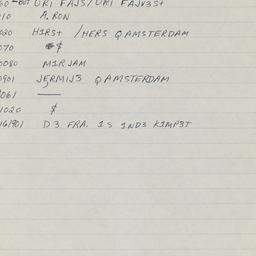 60 - OUT URI FAJS / URI FAJV3S+
10 A. RON
020 H1RS+ / HERS Q AMSTERDAM
070 $
0080 M1RJAM
0901 JERMIJ3 Q AMSTERDAM
061 —
1020 $
161901 D3 FRA. 1S 1ND3 K1MP3T